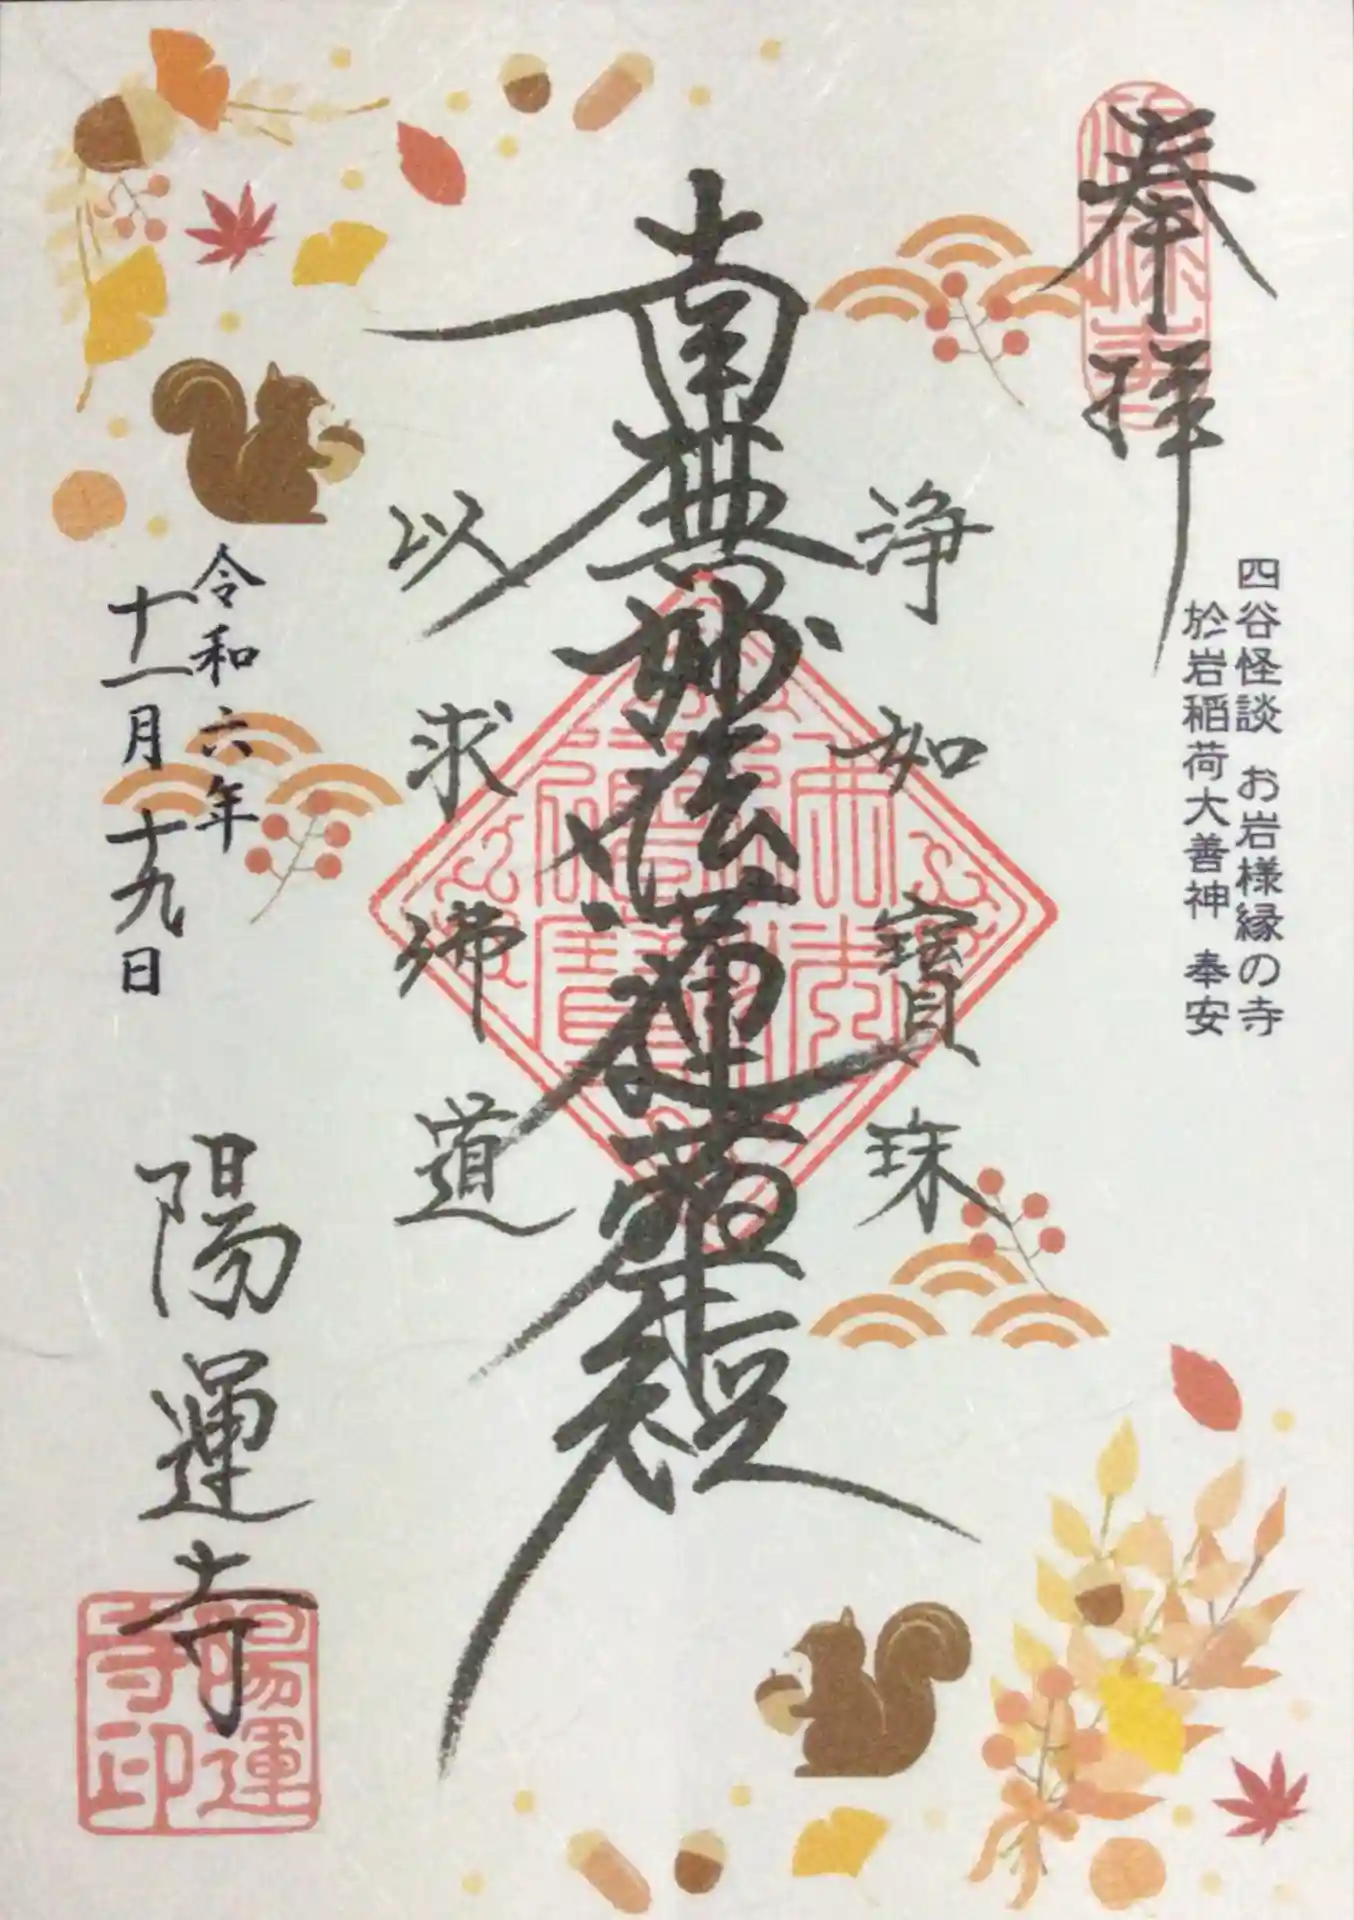 奉拝
四谷怪談 お岩様縁の寺
於岩稲荷大善神 奉安
浄如寶珠
南無妙法蓮華経
以求佛道
令和六年
十一月十九日
陽運寺
陽運寺印